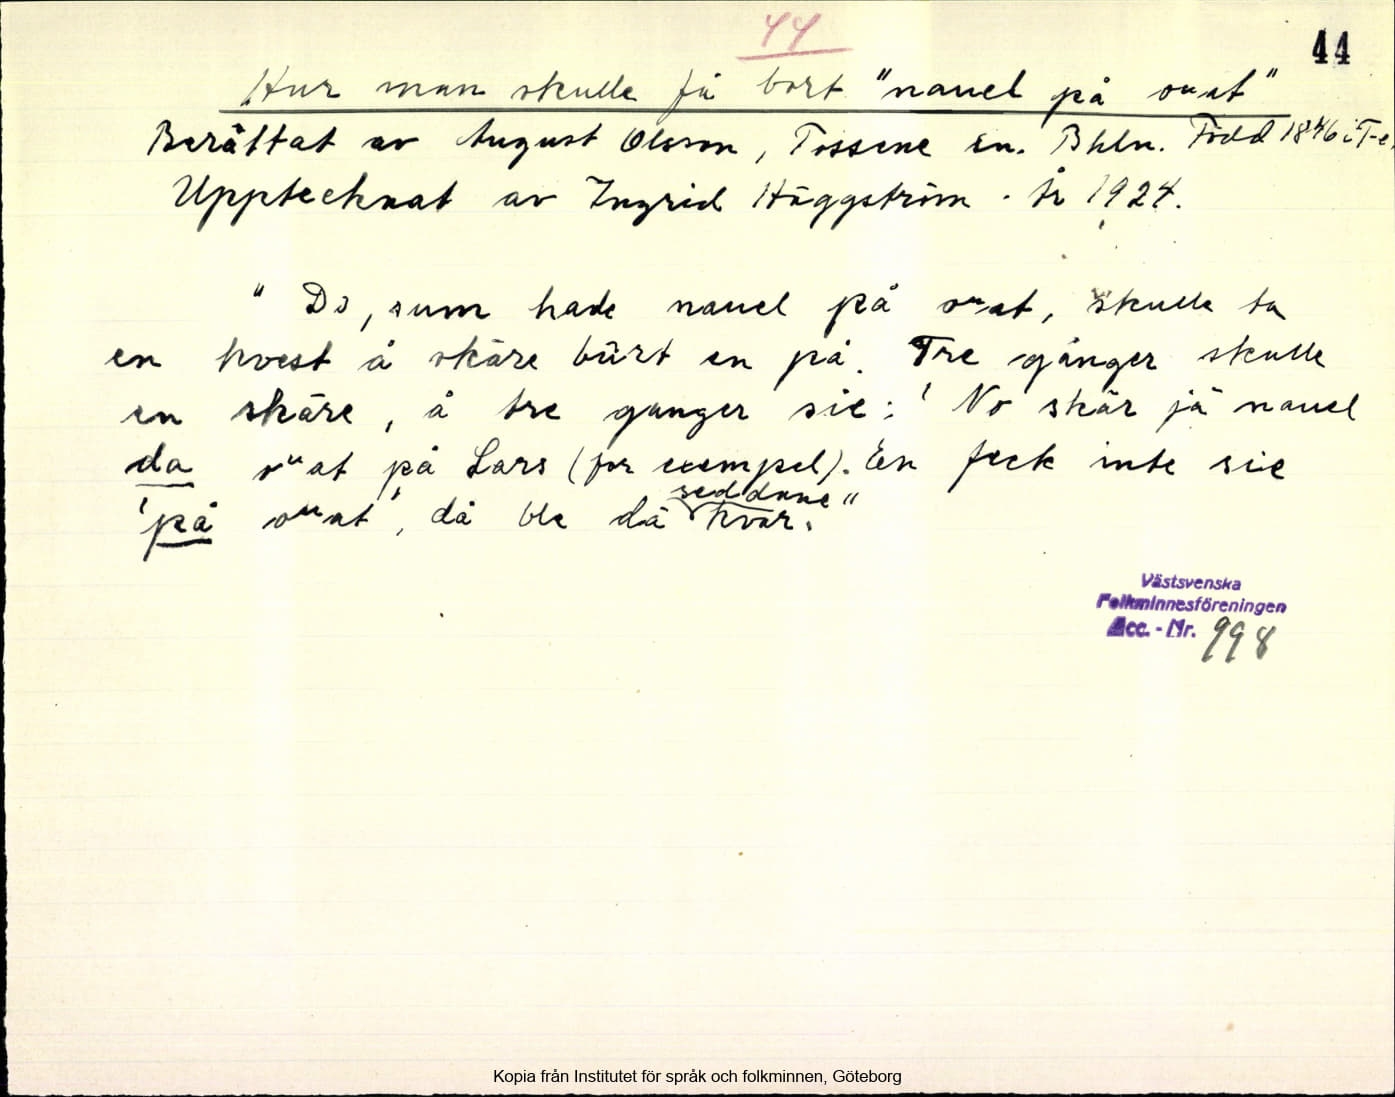 44
44
Hur man skulle få bort "nauel på ouat"
Berättat av August Olsson, Tossene sn. Bhln. Född 1846 i T-e.
Upptecknat av Ingrid Häggström. År 1924.
" Di, sum hade nauel på ouat, skulle ta
en kvest å skäre bûrt en på. Tre gånger skulle
en skäre, å tre gånger sie: 'No skär jä nauel
da ouat på Lars (for exempel). En feck inte sie
'på ouat', då ble dä seddane kvar."
Västsvenska
Folkminnesföreningen
Acc.-Nr. 998
Kopia från Institutet för språk och folkminnen, Göteborg